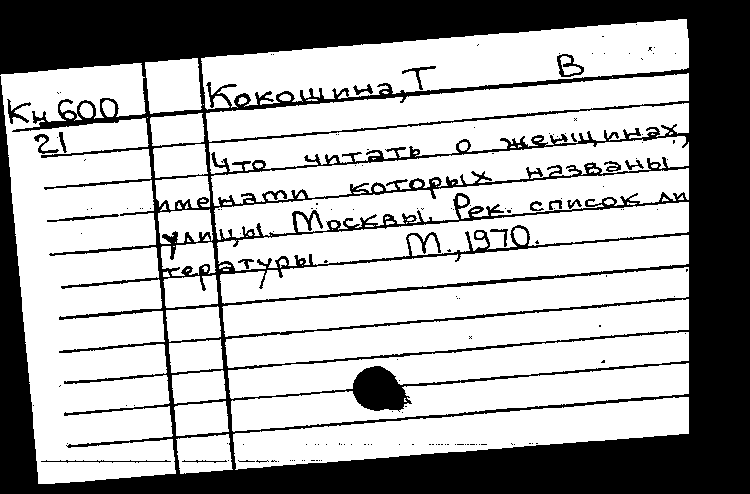 Кокошина, Т В
Кн 600
21
Что читать о женщинах,
именами которых названы
улицы. Москвы. Рек. список ли
тературы. М., 1970.